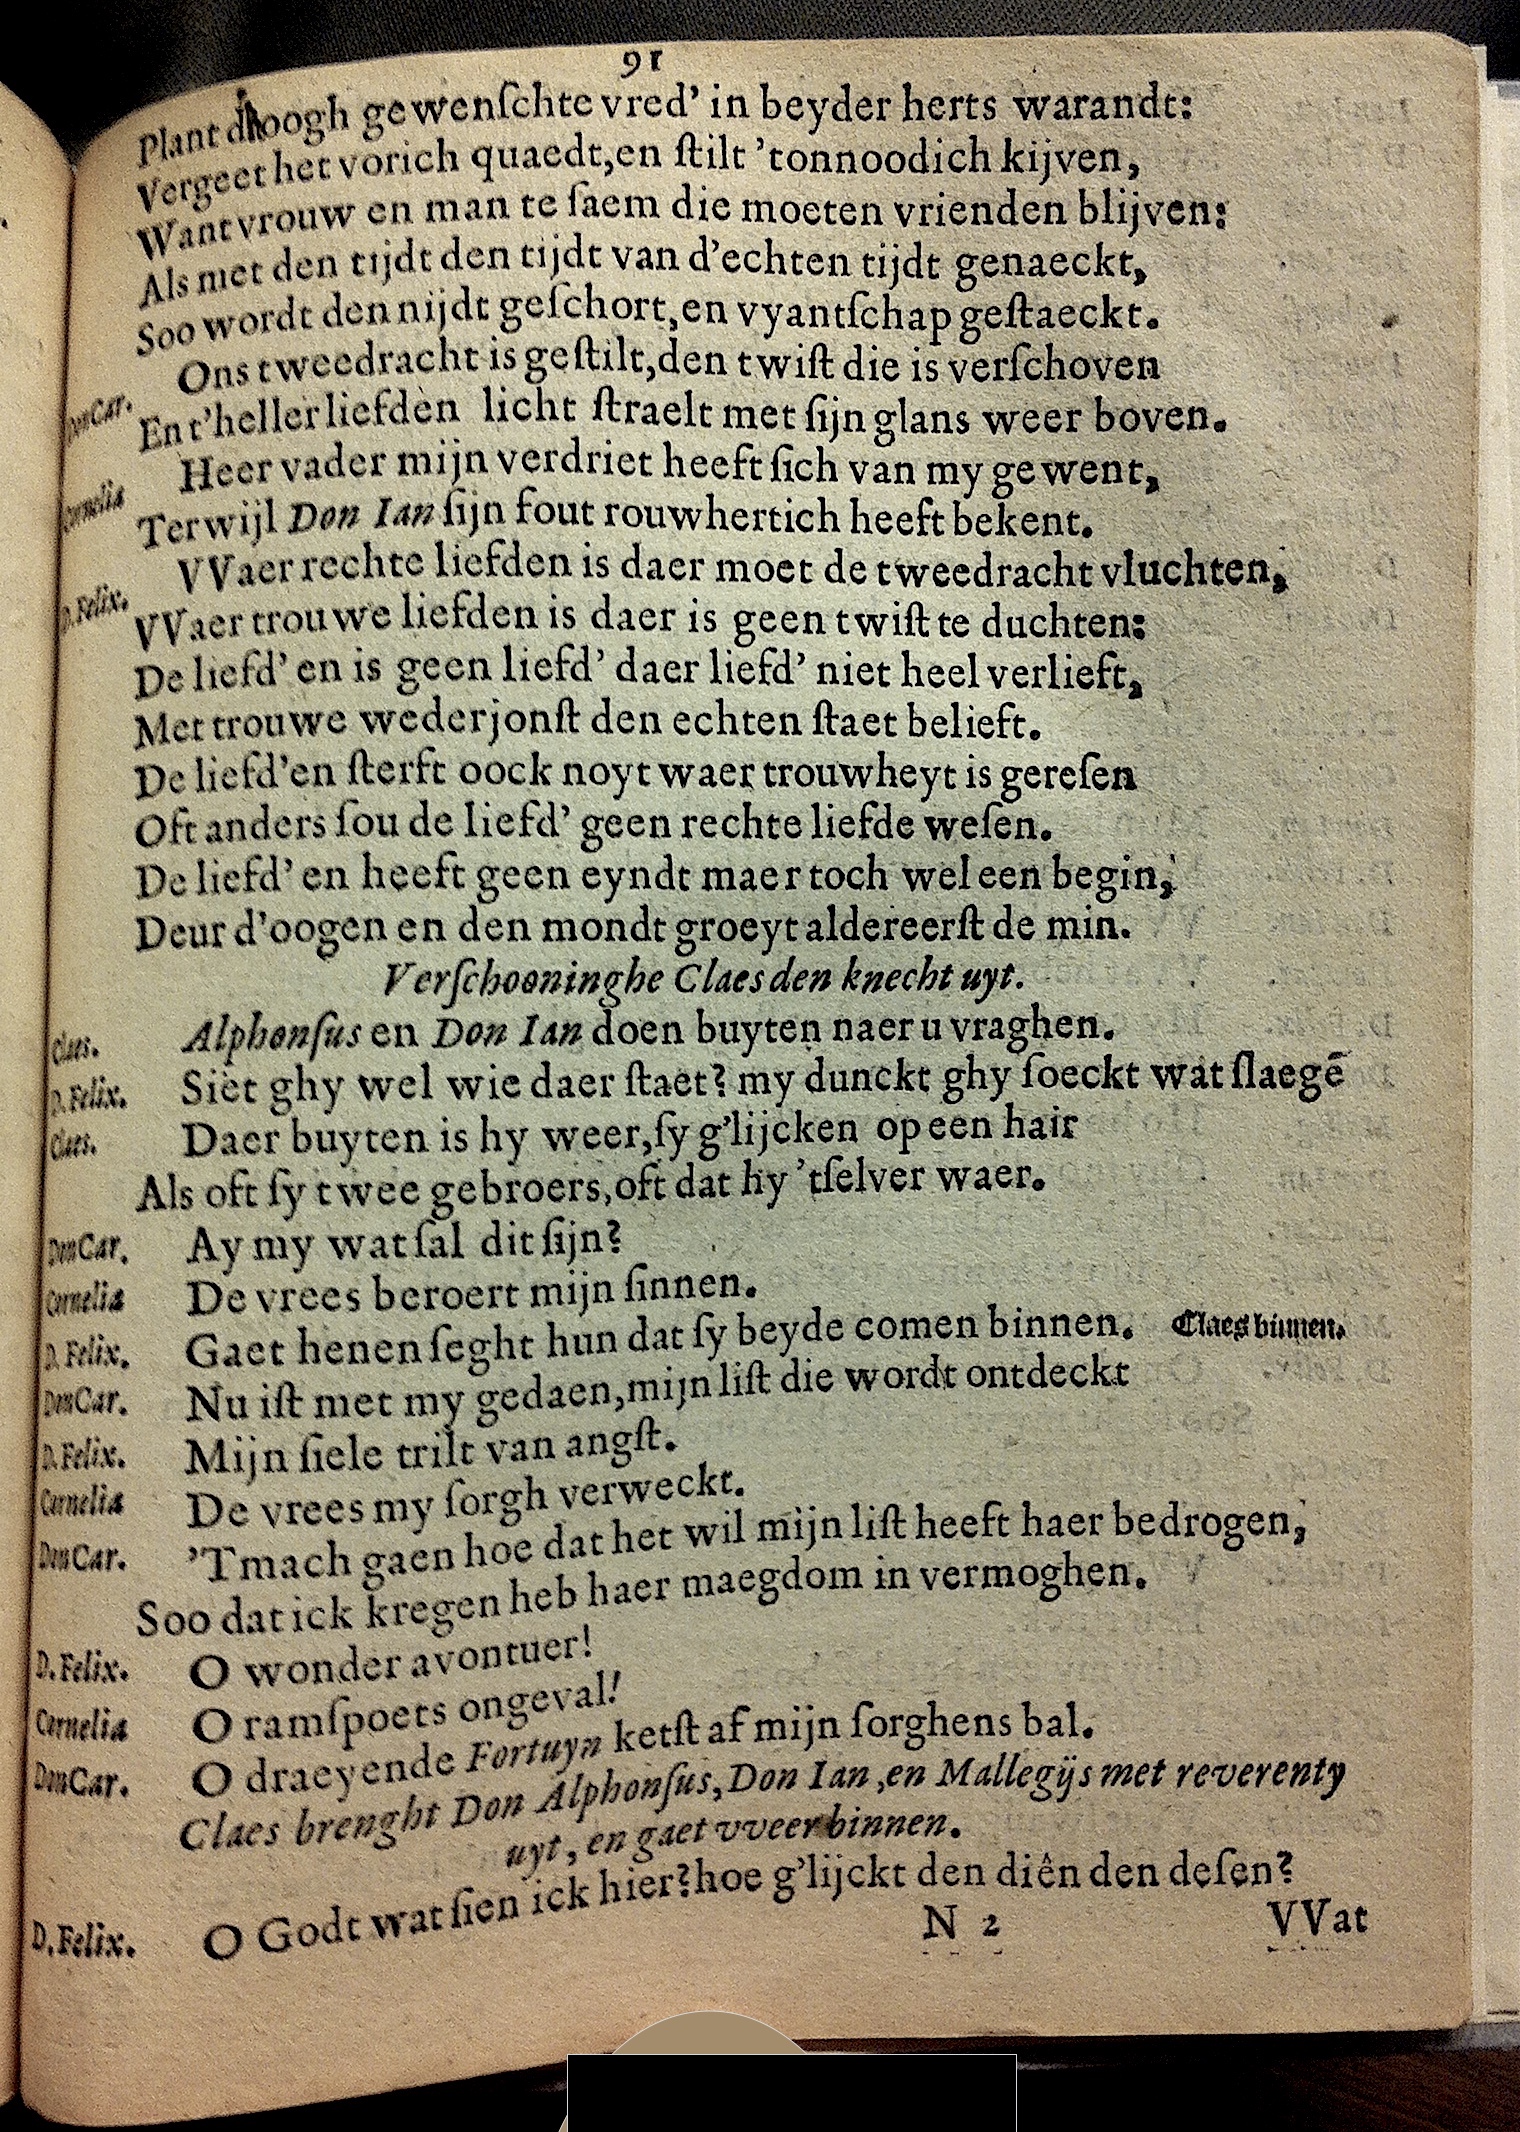 91
Plant d'hoogh gewenſchte vred' in beyder herts warandt:
Vergeet het vorich quaedt,en ſtilt 'tonnoodich kijven,
Want vrouw en man te ſaem die moeten vrienden blijven:
Als met den tijdt den tijdt van d'echten tijdt genaeckt,
Soo wordt den nijdt geſchort,en vyantſchap geſtaeckt.
Don Car. Ons tweedracht is geſtilt,den twiſt die is verſchoven
En t'heller liefden licht ſtraelt met ſijn glans weer boven.
Cornelia Heer vader mijn verdriet heeft ſich van my gewent,
Terwijl Don Ian ſijn fout rouwhertich heeft bekent.
D. Felix. VVaer rechte liefden is daer moet de tweedracht vluchten,
VVaer trouwe liefden is daer is geen twiſt te duchten:
De liefd' en is geen liefd' daer liefd' niet heel verlieft,
Met trouwe wederjonſt den echten ſtaet belieft.
De liefd'en ſterft oock noyt waer trouwheyt is gereſen
Oft anders ſou de liefd' geen rechte liefde weſen.
De liefd' en heeft geen eyndt maer toch wel een begin,
Deur d'oogen en den mondt groeyt aldereerſt de min.
Verſchooninghe Claes den knecht uyt.
Claes. Alphonſus en Don Ian doen buyten naer u vraghen.
D. Felix. Siet ghy wel wie daer ſtaet? my dunckt ghy ſoeckt wat ſlaegē
Claes. Daer buyten is hy weer,ſy g'lijcken op een hair
Als oft ſy twee gebroers,oft dat hy 'tſelver waer.
Don Car. Ay my wat ſal dit ſijn?
Cornelia De vrees beroert mijn ſinnen.
D. Felix. Gaet henen ſeght hun dat ſy beyde comen binnen. Claes binnen.
Don Car. Nu iſt met my gedaen,mijn liſt die wordt ontdeckt
D. Felix. Mijn ſiele trilt van angſt.
Cornelia De vrees my ſorgh verweckt.
Don Car. 'Tmach gaen hoe dat het wil mijn liſt heeft haer bedrogen,
Soo dat ick kregen heb haer maegdom in vermoghen.
D. Felix. O wonder avontuer!
Cornelia O ramſpoets ongeval!
Don Car. O draeyende Fortuyn ketſt af mijn ſorghens bal.
Claes brenght Don Alphonſus, Don Ian ,en Mallegijs met reverenty
uyt, en gaet vveer binnen.
D. Felix. O Godt wat ſien ick hier?hoe g'lijckt den diên den deſen?
N 2 VVat